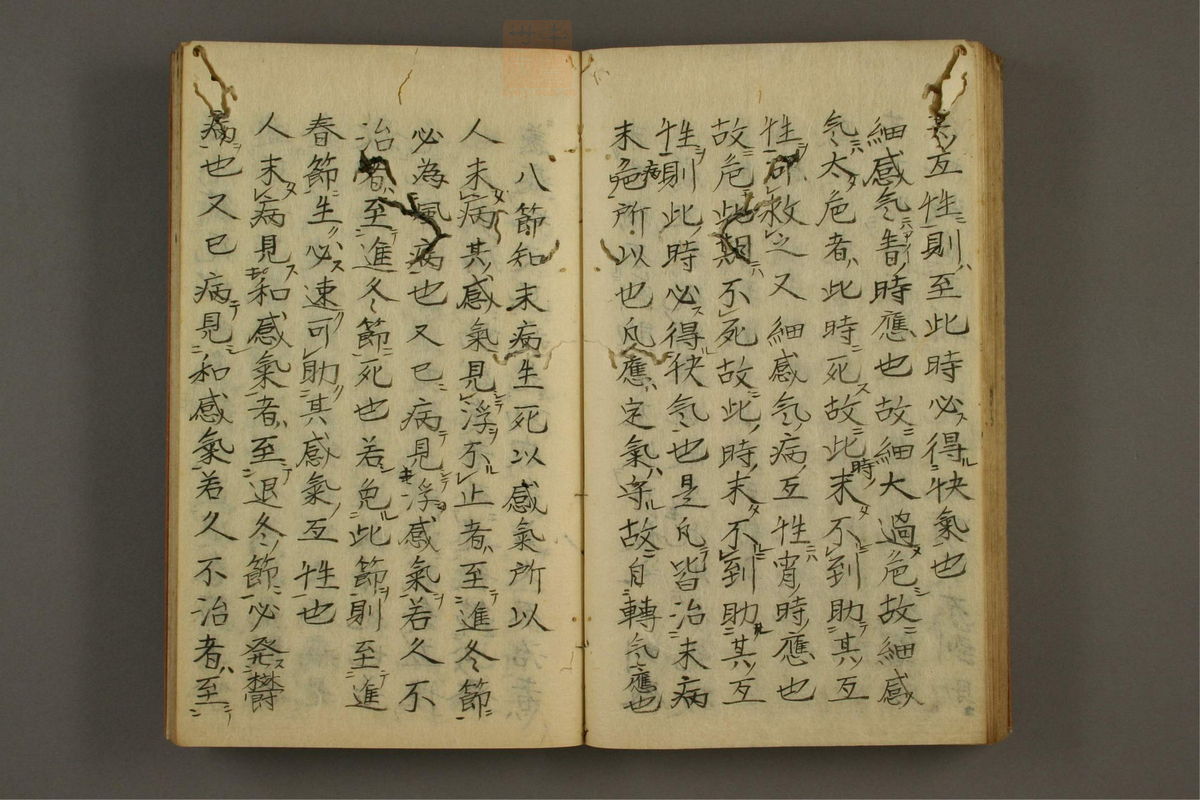 互性則至此時必得快氣也
細感气皆時應也故細大過危故細感
气太危者此時死故此時未不到助其互
性可救之又細感气病互性宵時應也
故危此期不死故此時未不到助其互
性則此時必得快气也是凡皆治未病
未危病所以也凡應定氣守故自轉气應也
八節知未病生死以感氣所以
人未病其感氣見浮不止者至進冬節
必為風病也又已病見浮感氣若久不
治者至進冬節死也若免此節則至進
春節生必速可助其感氣互性也
人未病見和感氣者至退冬節必発欝
病也又已病見和感氣若久不治者至